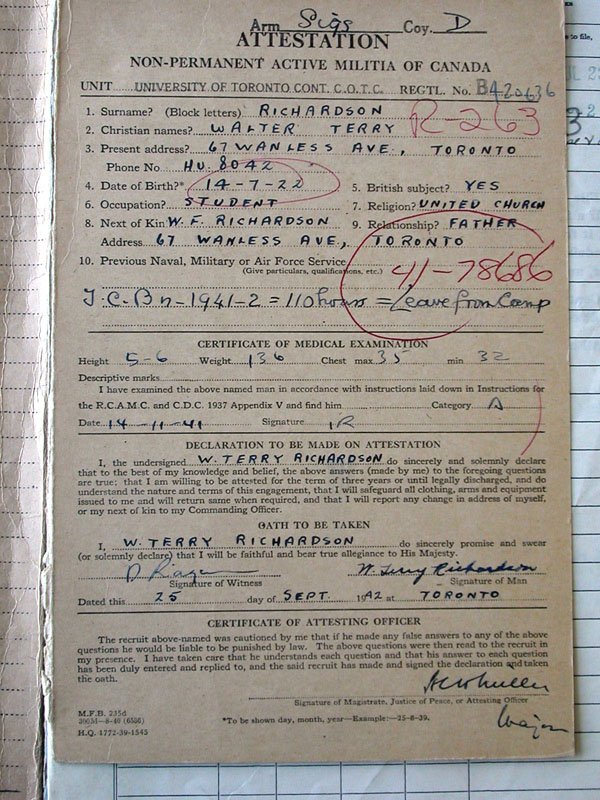 Arm Sigs Coy. D
ATTESTATION
NON-PERMANENT ACTIVE MILITIA OF CANADA
UNIT UNIVERSITY OF TORONTO CONT. C.O.T.C. REGTL. No. B420636
R-263
1. Surname? (Block letters) RICHARDSON
2. Christian names? WALTER TERRY
3. Present address? 67 WANLESS AVE., TORONTO
Phone No. HU. 8042
4. Date of Birth?* 14-7-22 5. British subject? YES
6. Occupation? STUDENT 7. Religion? UNITED CHURCH
8. Next of Kin W. F. RICHARDSON 9. Relationship? FATHER
Address 67 WANLESS AVE, TORONTO
10. Previous Naval, Military or Air Force Service
(Give particulars, qualifications, etc.)
41-78686
T.C.Bn-1941-2 = 110 hours = Leave from Camp
CERTIFICATE OF MEDICAL EXAMINATION
Height 5-6 Weight 136 Chest max. 35 min 32
Descriptive marks
I have examined the above named man in accordance with instructions laid down in Instructions for
the R.C.A.M.C. and C.D.C. 1937 Appendix V and find him Category A
Date 14-11-41 Signature
DECLARATION TO BE MADE ON ATTESTATION
I, the undersigned W. TERRY RICHARDSON do sincerely and solemnly declare
that to the best of my knowledge and belief, the above answers (made by me) to the foregoing questions
are true; that I am willing to be attested for the term of three years or until legally discharged, and do
understand the nature and terms of this engagement, that I will safeguard all clothing, arms and equipment
issued to me and will return same when required, and that I will report any change in address of myself,
or my next of kin to my Commanding Officer.
OATH TO BE TAKEN
I, W. TERRY RICHARDSON do sincerely promise and swear
(or solemnly declare) that I will be faithful and bear true allegiance to His Majesty.
W. Terry Richardson
Signature of Witness Signature of Man
Dated this 25 day of SEPT. 1942 at TORONTO
CERTIFICATE OF ATTESTING OFFICER
The recruit above-named was cautioned by me that if he made any false answers to any of the above
questions he would be liable to be punished by law. The above questions were then read to the recruit in
my presence. I have taken care that he understands each question and that his answer to each question
has been duly entered and replied to, and the said recruit has made and signed the declaration and taken
the oath.
Signature of Magistrate, Justice of Peace, or Attesting Officer
Major
M.F.B. 235d
*To be shown day, month, year—Example:—25-8-39.
H.Q. 1772-39-1545